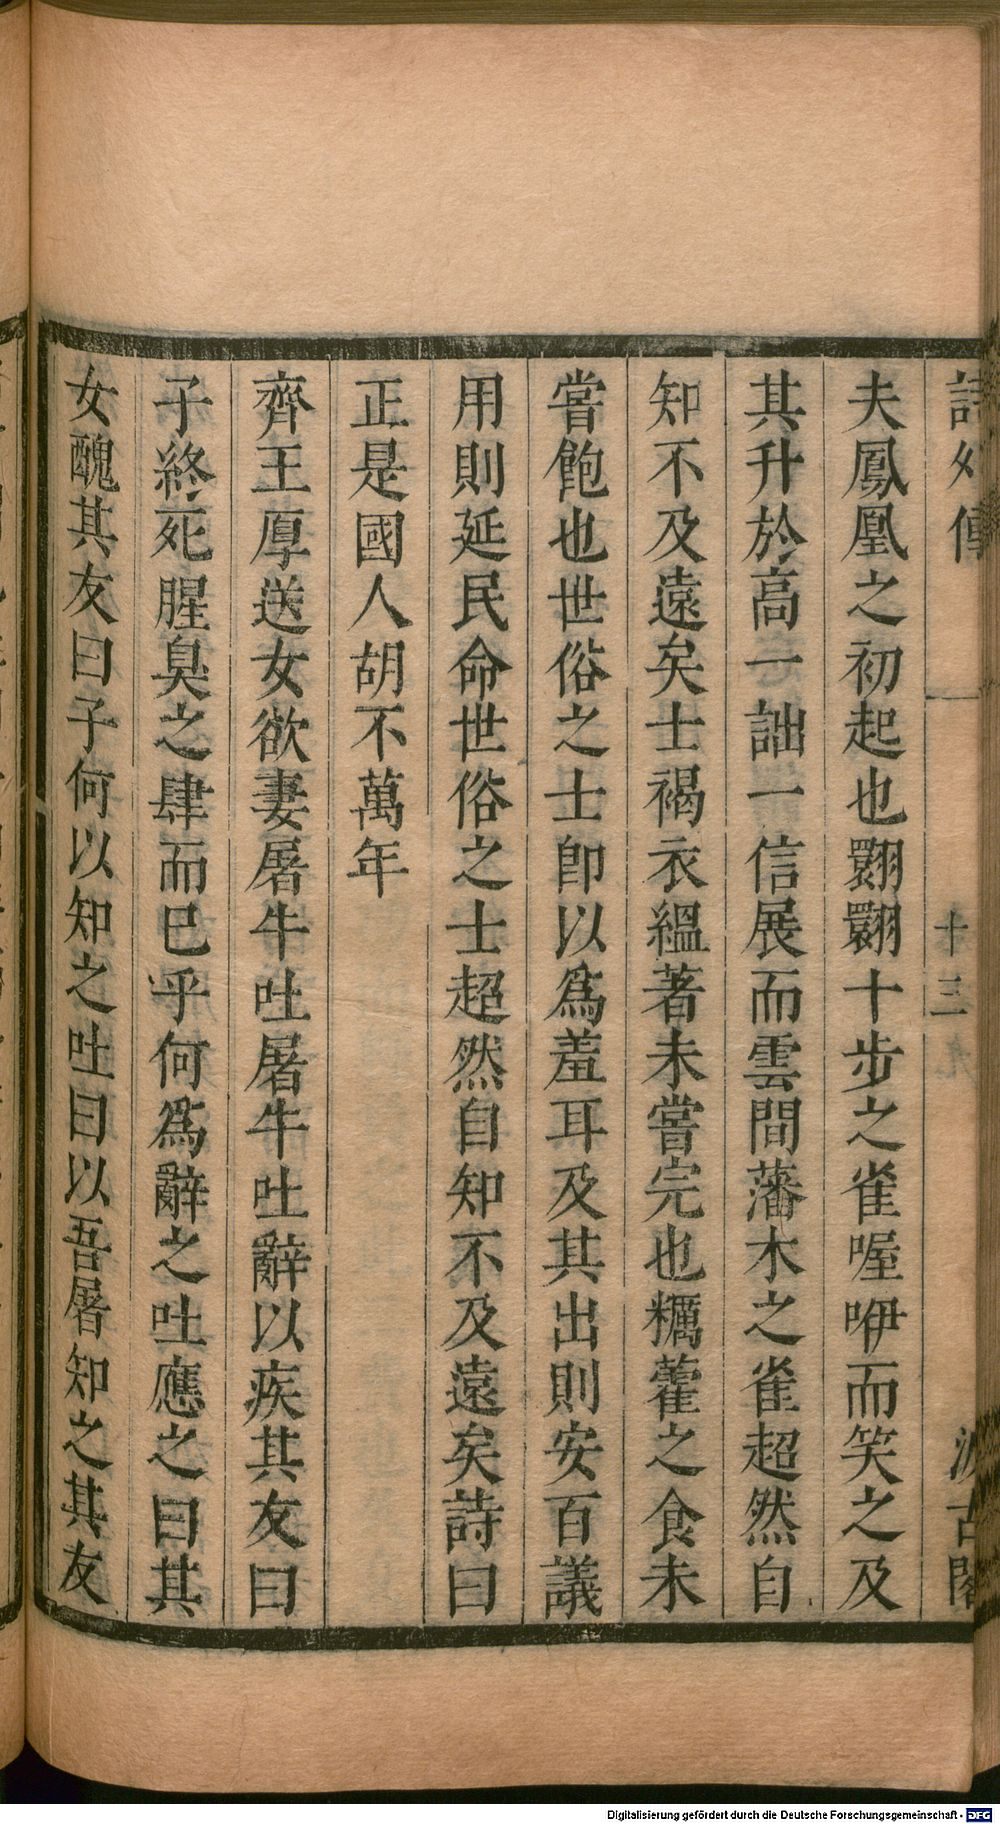 詩外傳
十三
汲古閣
夫鳳凰之初起也翾翾十步之雀喔咿而笑之及
其升於高一詘一信展而雲間藩木之雀超然自
知不及遠矣士褐衣縕著未嘗完也糲藿之食未
嘗飽也世俗之士卽以爲羞耳及其出則安百議
用則延民命世俗之士超然自知不及遠矣詩曰
正是國人胡不萬年
齊王厚送女欲妻屠牛吐屠牛吐辭以疾其友曰
子終死腥臭之肆而巳乎何爲辭之吐應之曰其
女醜其友曰子何以知之吐曰以吾屠知之其友
Digitalisierung gefördert durch die Deutsche Forschungsgemeinschaft - DFG